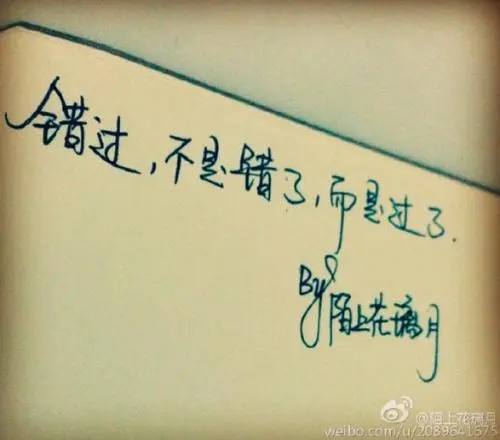 错过，不是错了，而是过了.
By 陌上花璃月
@陌上花璃月
weibo.com/u/2089641675